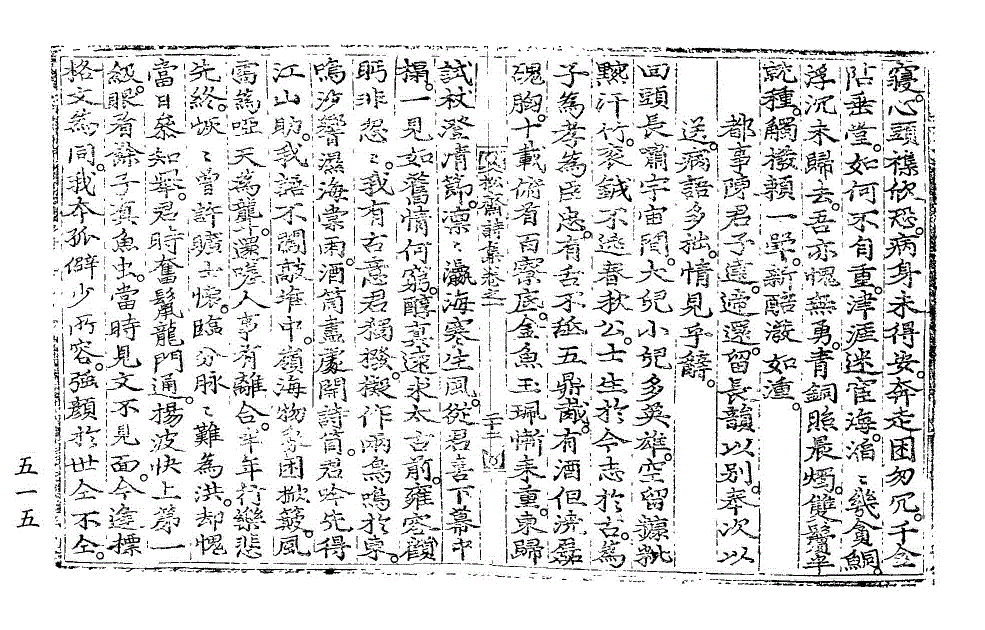 寢心頭襟依恐病身未得安奔走困勿冗千金
阽垂堂如何不自重津涯迷宦海滔〻幾貪餌
浮沉未歸去吾亦愧無勇青銅照晨燭雙鬢
就種觸撥賴一尊新醅潑如湩
都事陵君子達遞還留長韻以別奉次以
送病語多拙情見乎辭
回頭長嘯宇宙間大兒小兒多英雄空留
汗竹袞鉞不逃春秋公士生於今志於古爲
子爲孝爲臣忠有舌不舐五鼎胾有酒但澆磊
磈胸十載俯首百寮底金魚玉珮慚来重東歸
松齋詩集卷之一
試杖澄清節凛〻瀛海寒生風從君喜下幕中
榻一見如舊情何窮醇真遠求太古前雍容顧
眄非忽〻我有古意君獨撥擬作兩鳥鳴於東
鳴沙響濕海棠雨酒筒盡處開詩筒君吟先得
江山助我語不關敲推中嶺海物象困掀簸風
雷爲啞天爲聾還嗟人事有離合半年行樂悲
先終恢〻曾許曠士懷臨分脉〻難爲洪却愧
當日蔡知舉君時奮鬣龍門通揚波快上第一
級眼看餘子真魚虫當時見文不見面今逢標
格文爲同我本孤僻少所容强顏於世仝不仝
五一五